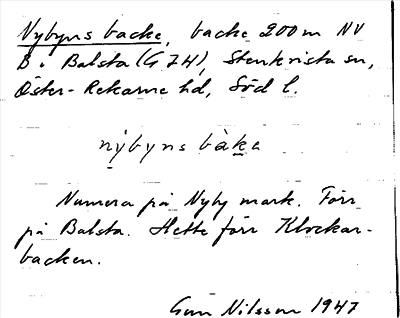 Nybyns backe, backe 200 m NV
B i Balsta (G 7H), Stenkvista sn,
Öster-Rekarne hd, Söd l.
nybyns bàka
Numera på Nyby mark. Förr
på Balsta. Hette förr Klockar-
backen.
Gun Nilsson 1947